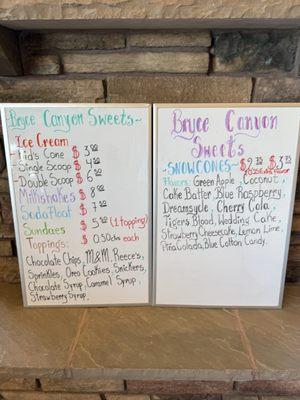 Bryce Canyon Sweets~
Ice Cream
Kid's Cone $3.00
Single Scoop $4.50
Double Scoop $6.00
Milkshakes $8.00
Soda Float $7.00
Sundaes $5.50 (1 topping)
Toppings: $0.50 each
Chocolate Chips, M&M, Reece's,
Sprinkles, Oreo Cookies, Snickers,
Chocolate Syrup, Caramel Syrup,
Strawberry Syrup,
Bryce Canyon
Sweets
~SNOWCONES~
Flavors: Green Apple, Coconut,
Cake Batter, Blue Raspberry,
Dreamsycle, Cherry Cola,
Tigers Blood, Wedding Cake,
Strawberry Cheesecake, Lemon Lime,
Piña Colada, Blue Cotton Candy.